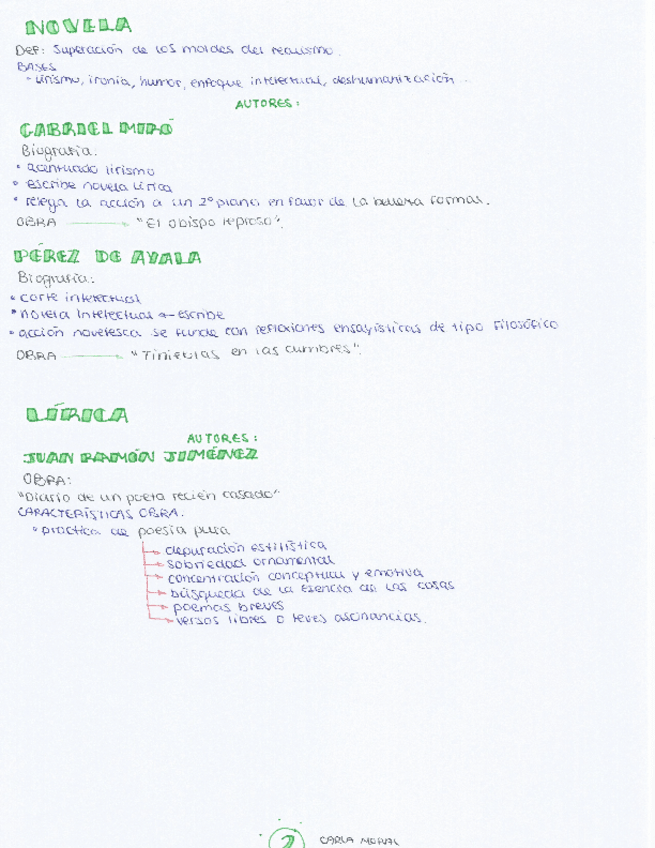 NOVELA
Def: Superación de los moldes del realismo.
BASES
- lirismo, ironía, humor, enfoque intelectual, deshumanización...
AUTORES:
GABRIEL MIRÓ
Biografía:
• acentuado lirismo
• escribe novela lírica
• relega la acción a un 2º plano en favor de la belleza formal.
OBRA → "El obispo leproso".
PÉREZ DE AYALA
Biografía:
• corte intelectual
• novela intelectual ← escribe
• acción novelesca se funde con reflexiones ensayísticas de tipo filosófico
OBRA → "Tinieblas en las cumbres".
LÍRICA
AUTORES:
JUAN RAMÓN JIMÉNEZ
OBRA:
"Diario de un poeta recién casado"
CARACTERÍSTICAS OBRA:
• práctica de poesía pura
→ depuración estilística
→ sobriedad ornamental
→ concentración conceptual y emotiva
→ búsqueda de la esencia de las cosas
→ poemas breves
→ versos libres o leves asonancias.
2 CARLA